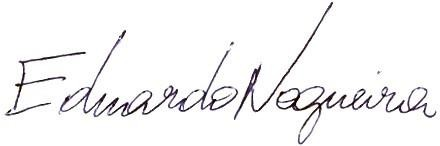 Eduardo Nogueira